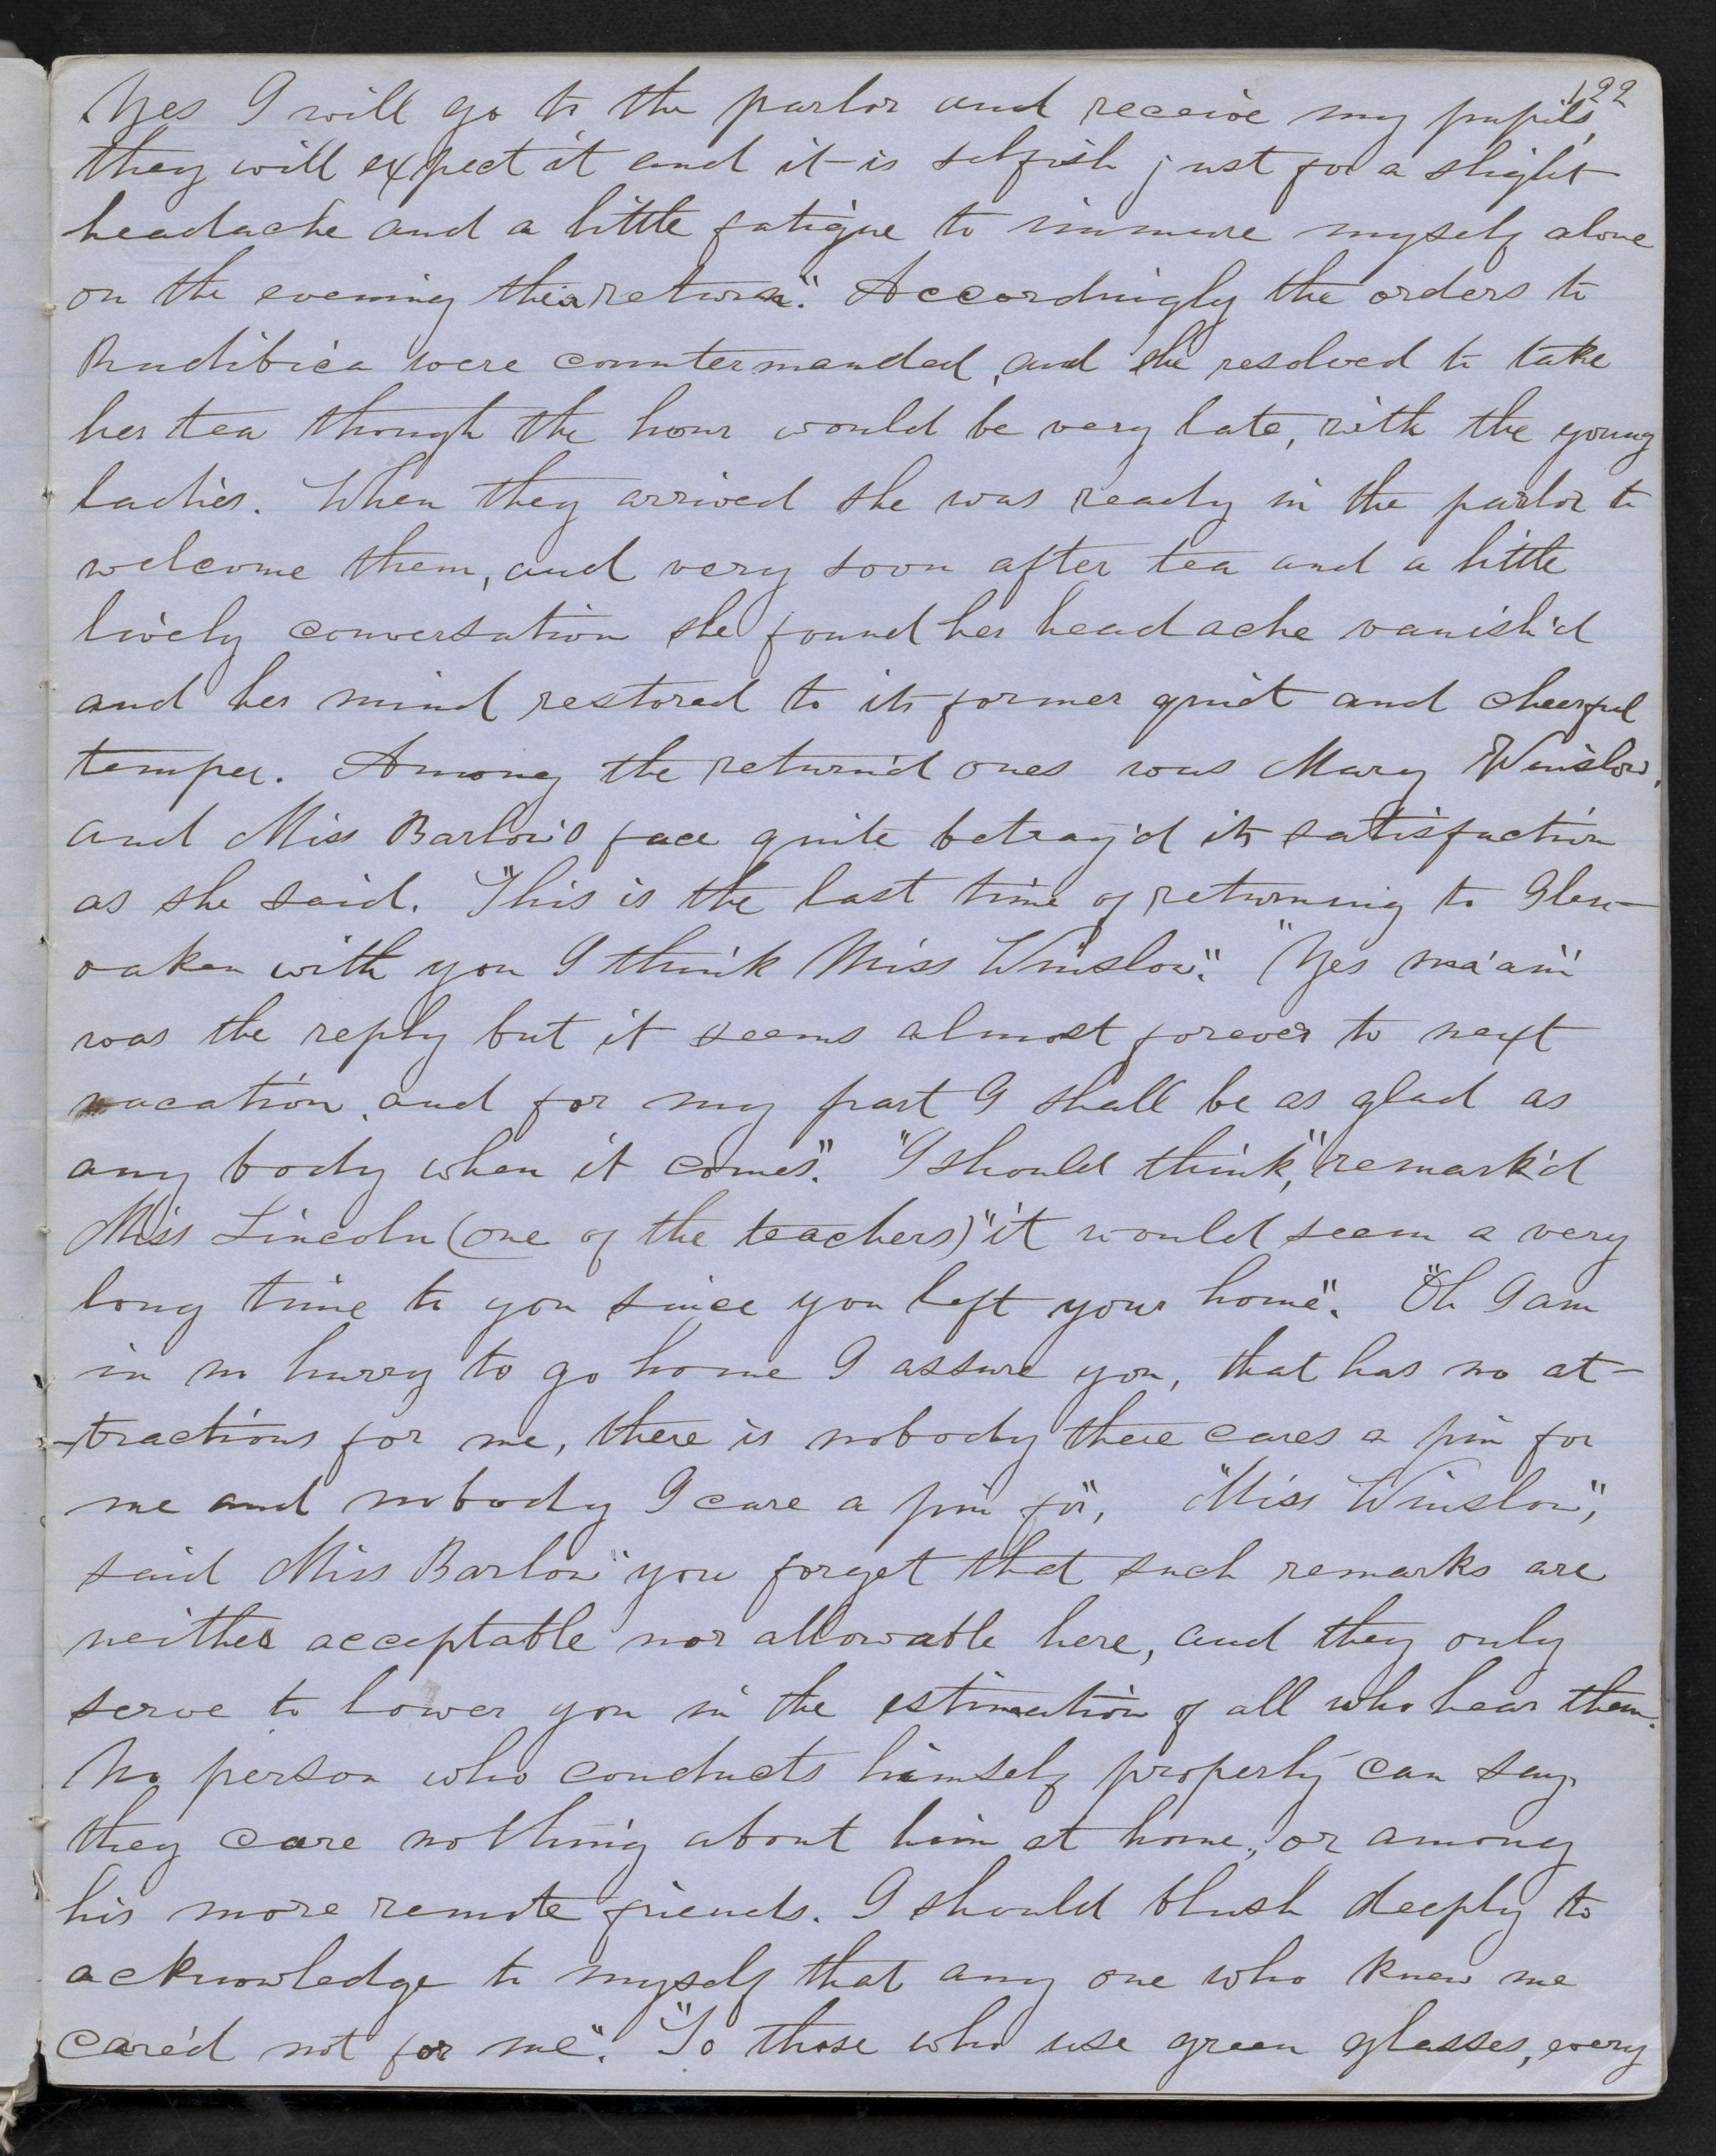 122
Yes I will go to the parlor and receive my pupils,
they will expect it and it is selfish just for a slight
headache and a little fatigue to immure myself alone
on the evening their return". Accordingly the orders to
were countermanded, and she resolved to take
her tea though the hour would be very late, with the young
ladies. When they arrived she was ready in the parlor to
welcome them, and very soon after tea and a little
lively conversation she found her headache vanish'd
and her mind restored to its former quiet and cheerful
temper. Among the return'd ones was Mary Winslow,
and Miss Barlow's face quite betray'd its satisfaction
as she said. "This is the last time of returning to Glen-
oaken with you I think Miss Winslow". "Yes ma'am"
was the reply but it seems almost forever to next
vacation, and for my part I shall be as glad as
any body when it comes". "I should think," remark'd
Miss Lincoln (one of the teachers) "it would seem a very
long time to you since you left your home". "Oh I am
in no hurry to go home I assure you, that has no at-
-tractions for me, there is nobody there cares a pin for
me and nobody I care a pin for", "Miss Winslow",
said Miss Barlow "you forget that such remarks are
neither acceptable nor allowable here, and they only
serve to lower you in the estimation of all who hear them.
No person who conducts himself properly can say,
they care nothing about him at home, or among
his more remote friends. I should blush deeply to
acknowledge to myself that any one who knew me
care'd not for me". "To those who use green glasses, every